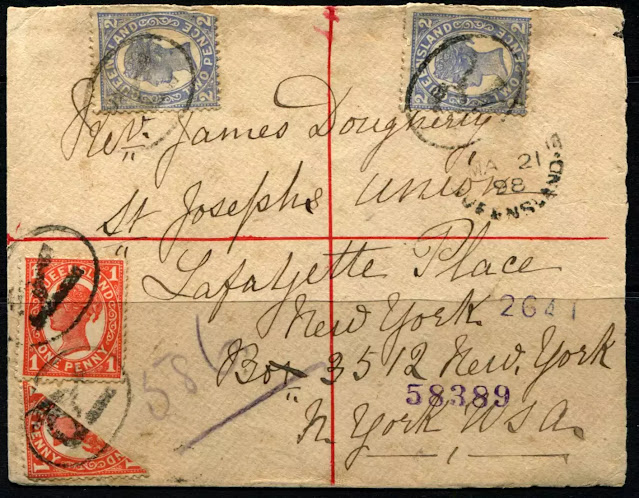 QUEENSLAND
TWO PENCE
2 2
QUEENSLAND
TWO PENCE
2 2
Rev. James Dougherty
MA 21
98
QUEENSLAND
St Josephs Union
Lafayette Place
QUEENSLAND
1
1 1
ONE PENNY
New York
2641
Box 3512 New York
58389
N York U.S.A.
PENNY
1